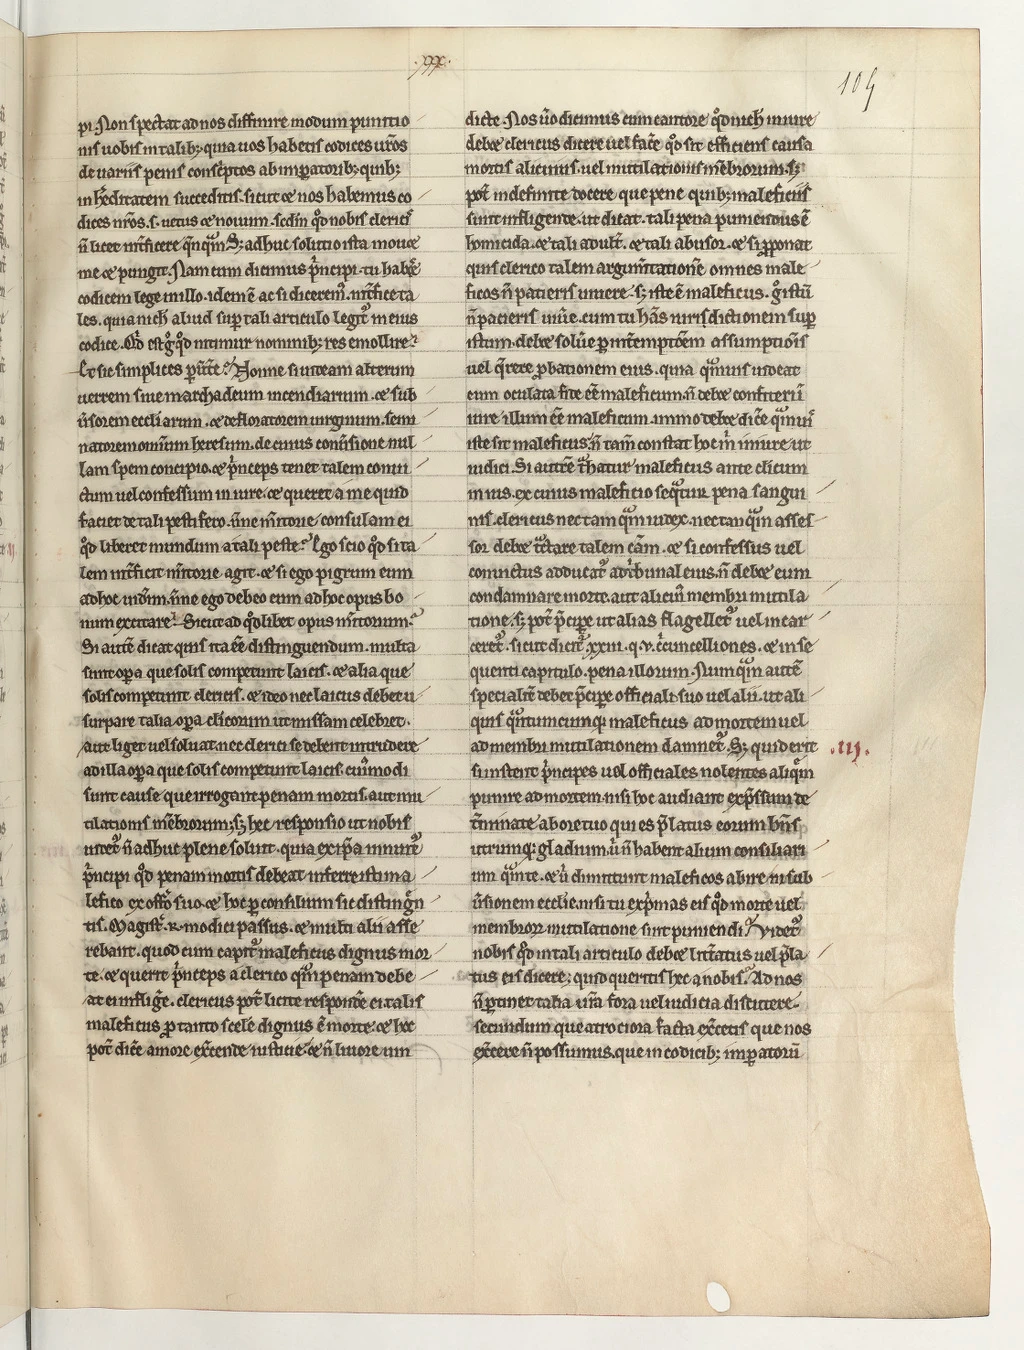 .xxx.
105
pi. Non spectat ad nos diffinire modum punitio
nis uobis in talib; quia uos habetis codices ur̃os
de variis penis consc̃ptos ab imp̱atorib; quib;
in h̃editatem succeditis. sicut ⁊ nos habemus co
dices nr̃os .s. uetus ⁊ nouum. scdm qd̃ nobis clerici
ñ licet int̃ficere q̃nq̃m. S; adhuc solutio ista mouet
me ⁊ pungit. Nam cum dicimus p̃ncipi. tu habes
codicem lege in illo. idem ẽ ac si dicerem̃. int̃fice ta
les. quia nich̃ aliud sup̱ tali articulo legit̃ in eius
codice. Qd̃ est g̊ qd̃ utimur nominib; res emollire?
Et sic simplices
Nonne si uiteam alterum
uerrem siue marchadeum incendiarium. ⁊ sub
ũsorem eccl̃iarum. ⁊ defloratorem uirginum. semi
natorem omium heresum. de cuius conũsione nul
lam spem concipio. ⁊ p̃nceps tenet talem conui
ctum uel confessum in iure. ⁊ queret a me quid
faciet de tali pestifero. ñne int̃itorie consulam ei
qd̃ liberet mundum a tali peste? Ego scio qd̃ si ta
lem int̃ficit m̃itorie agit. ⁊ si ego pigrum eum
ad hoc uid̃m. ñne ego debeo eum ad hoc opus bo
num excitare? Sicut ad qd̃libet opus m̃itorium?
Si autẽ dicat quis ita eẽ distinguendum. multa
sunt op̱a que solis competunt laicis. ⁊ alia que
solis competunt clericis. ⁊ ideo nec laicus debet u
surpare talia op̱a cl̃icorum ut missam celebret.
aut liget uel soluat. nec clerici se debent intrudere
ad illa op̱a que solis competunt laicis. cui̾modi
sunt cause que irrogant penam mortis. aut mu
tilationis mẽbrorum; s; hec responsio ut nobis
uidet̃ ñ adhuc plene soluit. quia ex ip̃a innuit̃
p̃ncipi qd̃ penam mortis debeat inferre isti ma
lefico ex off̃o suo. ⁊ hoc p̱ consilium sic distingũ
tis. Magist̃. R. modici passus. ⁊ multi alii asse
rebant. quod cum capit̃ maleficus dignus mor
te. ⁊ querit p̃nceps a clerico q̃m penam debe
at ei inflig̃e. clericus pot̃ licite responde ei. talis
maleficus p̱ tanto scelẽ dignus ẽ morte. ⁊ hoc
pot̃ dicẽ amore exc̃ende iusticie. ⁊ ñ liuore uin
dicte. Nos ũo dicimus eum cautiore qd̃ nich̃ in iure
debet clericus dicere uel facẽ qd̃ sit efficiens causa
mortis alicuius. uel mutilationis mẽbrorum. S;
pot̃ indefinite docere que pene quib; maleficiis
sunt infligente. ut dicat. tali pena puniendus ẽ
homicida. ⁊ tali adult̃. ⁊ tali abusor. ⁊ si p̱ponat
quis clerico talem argum̃tationẽ omnes male
ficos ñ patieris uiuere. s; iste ẽ maleficus. g̊ istũ
ñ pacieris uiũe. cum tu h̃as iurisdictionem sup̱
istum. debes soluẽ p̱ int̃emptõem assumptiõis
uel q̃rere p̱bationem eius. quia q̃muis uideat
eum oculata fide eẽ maleficum. ñ debet confiteri ĩ
iure illum eẽ maleficum. immo debet dicẽ q̃muis
iste sit maleficus. ñ tam̃ constat hoc m̃ in iure ut
iudici. Si autẽ t̃hatur maleficus ante cl̃icum
in ius. ex cuius maleficio seq̃tur pena sangui
nis. clericus nec tam q̃m iudex. nec tam q̃m asses
sor debet t̃ctare talem cãm. ⁊ si confessus uel
conuictus adducat̃ ad t̃bunal eius. ñ debet eum
condampnare morte. aut alicui̾ membri mutila
tione. s; pot̃ p̃cipe ut alias flagellet̃ uel incar
ceret̃. sicut dicit̃ .xxiii. q. v.
⁊ in se
quenti capitulo. pena illorum. Numq̃m autẽ
specialit̃ debet p̃cipe officiali suo uel alii. ut ali
quis q̃ntumcumq; maleficus ad mortem uel
ad membri mutilationem damnet̃. S; quid erit
.III.
si instent p̃ncipes uel officiales nolentes aliq̃m
punire ad mortem nisi hoc audiant exp̃ssum de
t̃minate ab ore tuo qui es p̃latus eorum h̃ns
utrumq; gladium. ũ ñ habent alium consiliari
um
⁊ ũ dimittunt maleficos abire in sub
ũsionem eccl̃ie. nisi tu exp̃mas eis qd̃ morte uel
membror̃ mutilatione sint puniendi? Videt̃
nobis qd̃ in tali articulo debet litt̃atus uel p̃la
tus eis dicere; quid queritis hec a nobis? Ad nos
ñ p̱tinet talia ur̃a fora uel iudicia discutere.
secundum que atrociora facta exc̃etis que nos
exc̃ere ñ possumus. que in codicib; imp̱atorũ